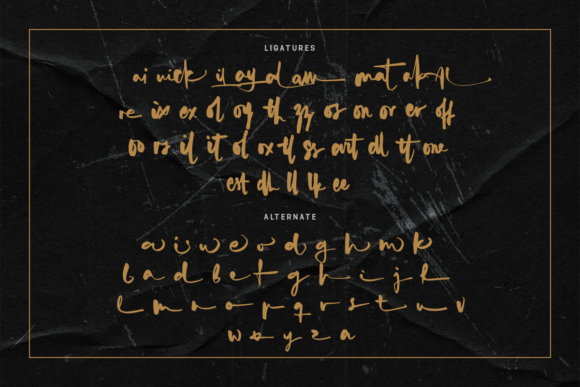 LIGATURES
ai nick il ay ol am mat ak
re is ex ol og th zz os on or er off
oo rs if it ol ox tf ss art dl tt one
est dh ll lk ee
ALTERNATE
a i u w e o d g h m k
b a d b e t g h i j k
l m n o p q r s t u v
w x y z a